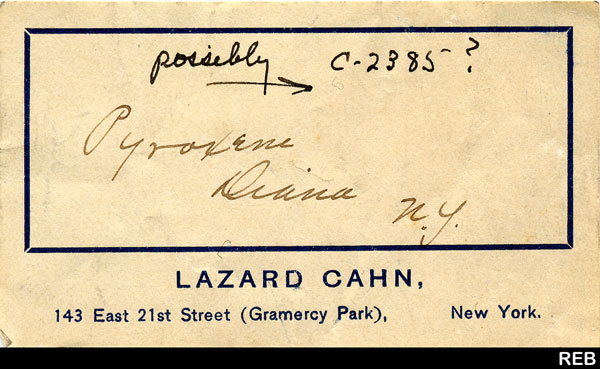 possibly → C-2385?
Pyroxene
Diana
N.Y.
LAZARD CAHN,
143 East 21st Street (Gramercy Park), New York.
REB